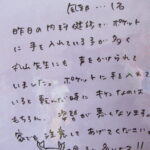 風邪…1名
昨日の内科健診で、ポケット
に手を入れている子が多く
先生にも声をかけられて
いましたよ。ポケットに手を入れて
いると転んだ時にキケンなのは
もちろん、姿勢が悪くなりマス。
家でも注意してあげてください。